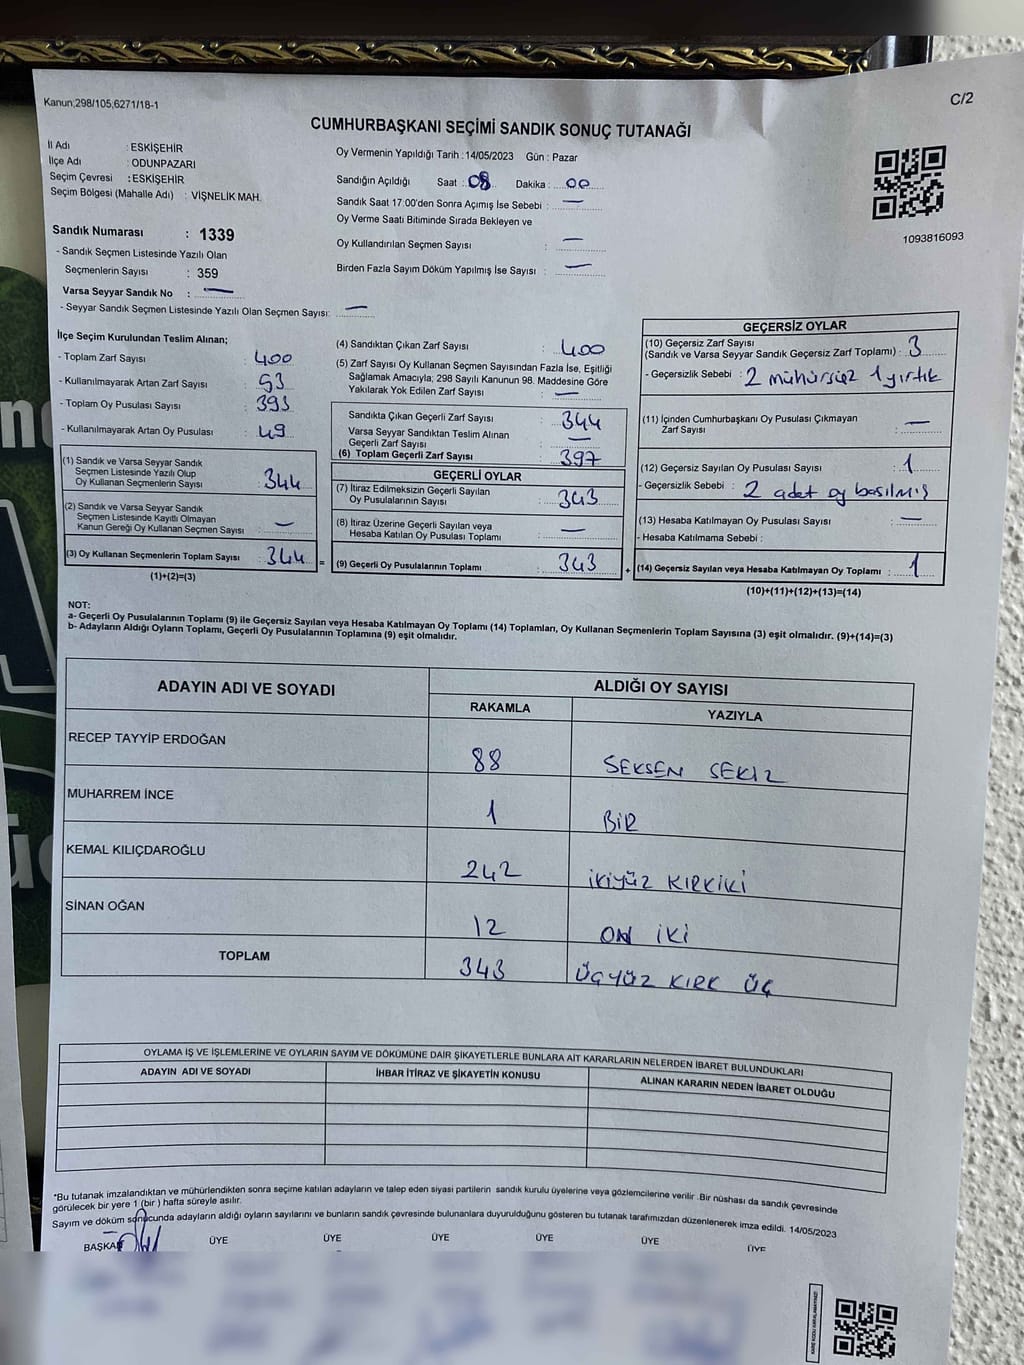 Kanun,298/105,6271/18-1
C/2
CUMHURBAŞKANI SEÇİMİ SANDIK SONUÇ TUTANAĞI
İl Adı : ESKİŞEHİR
İlçe Adı : ODUNPAZARI
Seçim Çevresi : ESKİŞEHİR
Seçim Bölgesi (Mahalle Adı) : VİŞNELİK MAH.
Sandık Numarası : 1339
- Sandık Seçmen Listesinde Yazılı Olan
Seçmenlerin Sayısı : 359
Varsa Seyyar Sandık No : —
- Seyyar Sandık Seçmen Listesinde Yazılı Olan Seçmen Sayısı: —
Oy Vermenin Yapıldığı Tarih : 14/05/2023 Gün : Pazar
Sandığın Açıldığı Saat : 08 Dakika : 00
Sandık Saat 17:00'den Sonra Açımış İse Sebebi : —
Oy Verme Saati Bitiminde Sırada Bekleyen ve
Oy Kullandırılan Seçmen Sayısı : —
Birden Fazla Sayım Döküm Yapılmış İse Sayısı : —
1093816093
İlçe Seçim Kurulundan Teslim Alınan;
- Toplam Zarf Sayısı : 400
- Kullanılmayarak Artan Zarf Sayısı : 53
- Toplam Oy Pusulası Sayısı : 393
- Kullanılmayarak Artan Oy Pusulası : 49
(1) Sandık ve Varsa Seyyar Sandık
Seçmen Listesinde Yazılı Olup
Oy Kullanan Seçmenlerin Sayısı : 344
(2) Sandık ve Varsa Seyyar Sandık
Seçmen Listesinde Kayıtlı Olmayan
Kanun Gereği Oy Kullanan Seçmen Sayısı : —
(3) Oy Kullanan Seçmenlerin Toplam Sayısı : 344 =
(1)+(2)=(3)
(4) Sandıktan Çıkan Zarf Sayısı : 400
(5) Zarf Sayısı Oy Kullanan Seçmen Sayısından Fazla İse, Eşitliği
Sağlamak Amacıyla; 298 Sayılı Kanunun 98. Maddesine Göre
Yakılarak Yok Edilen Zarf Sayısı : —
Sandıkta Çıkan Geçerli Zarf Sayısı : 344
Varsa Seyyar Sandıktan Teslim Alınan
Geçerli Zarf Sayısı : —
(6) Toplam Geçerli Zarf Sayısı : 397
GEÇERLİ OYLAR
(7) İtiraz Edilmeksizin Geçerli Sayılan
Oy Pusulalarının Sayısı : 343
(8) İtiraz Üzerine Geçerli Sayılan veya
Hesaba Katılan Oy Pusulası Toplamı : —
(9) Geçerli Oy Pusulalarının Toplamı : 343 +
GEÇERSİZ OYLAR
(10) Geçersiz Zarf Sayısı
(Sandık ve Varsa Seyyar Sandık Geçersiz Zarf Toplamı) : 3
- Geçersizlik Sebebi : 2 mühürsüz 1 yırtık
(11) İçinden Cumhurbaşkanı Oy Pusulası Çıkmayan
Zarf Sayısı : —
(12) Geçersiz Sayılan Oy Pusulası Sayısı : 1
- Geçersizlik Sebebi : 2 adet oy basılmış
(13) Hesaba Katılmayan Oy Pusulası Sayısı : —
- Hesaba Katılmama Sebebi :
(14) Geçersiz Sayılan veya Hesaba Katılmayan Oy Toplamı : 1
(10)+(11)+(12)+(13)=(14)
NOT:
a- Geçerli Oy Pusulalarının Toplamı (9) ile Geçersiz Sayılan veya Hesaba Katılmayan Oy Toplamı (14) Toplamları, Oy Kullanan Seçmenlerin Toplam Sayısına (3) eşit olmalıdır. (9)+(14)=(3)
b- Adayların Aldığı Oyların Toplamı, Geçerli Oy Pusulalarının Toplamına (9) eşit olmalıdır.
ADAYIN ADI VE SOYADI ALDIĞI OY SAYISI
RAKAMLA YAZIYLA
RECEP TAYYİP ERDOĞAN 88 SEKSEN SEKİZ
MUHARREM İNCE 1 BİR
KEMAL KILIÇDAROĞLU 242 İKİYÜZ KIRKİKİ
SİNAN OĞAN 12 ON İKİ
TOPLAM 343 ÜÇYÜZ KIRK ÜÇ
OYLAMA İŞ VE İŞLEMLERİNE VE OYLARIN SAYIM VE DÖKÜMÜNE DAİR ŞİKAYETLERLE BUNLARA AİT KARARLARIN NELERDEN İBARET BULUNDUKLARI
ADAYIN ADI VE SOYADI İHBAR İTİRAZ VE ŞİKAYETİN KONUSU ALINAN KARARIN NEDEN İBARET OLDUĞU
*Bu tutanak imzalandıktan ve mühürlendikten sonra seçime katılan adayların ve talep eden siyasi partilerin sandık kurulu üyelerine veya gözlemcilerine verilir .Bir nüshası da sandık çevresinde
görülecek bir yere 1 (bir ) hafta süreyle asılır.
Sayım ve döküm sonucunda adayların aldığı oyların sayılarını ve bunların sandık çevresinde bulunanlara duyurulduğunu gösteren bu tutanak tarafımızdan düzenlenerek imza edildi. 14/05/2023
BAŞKAN ÜYE ÜYE ÜYE ÜYE ÜYE ÜYE